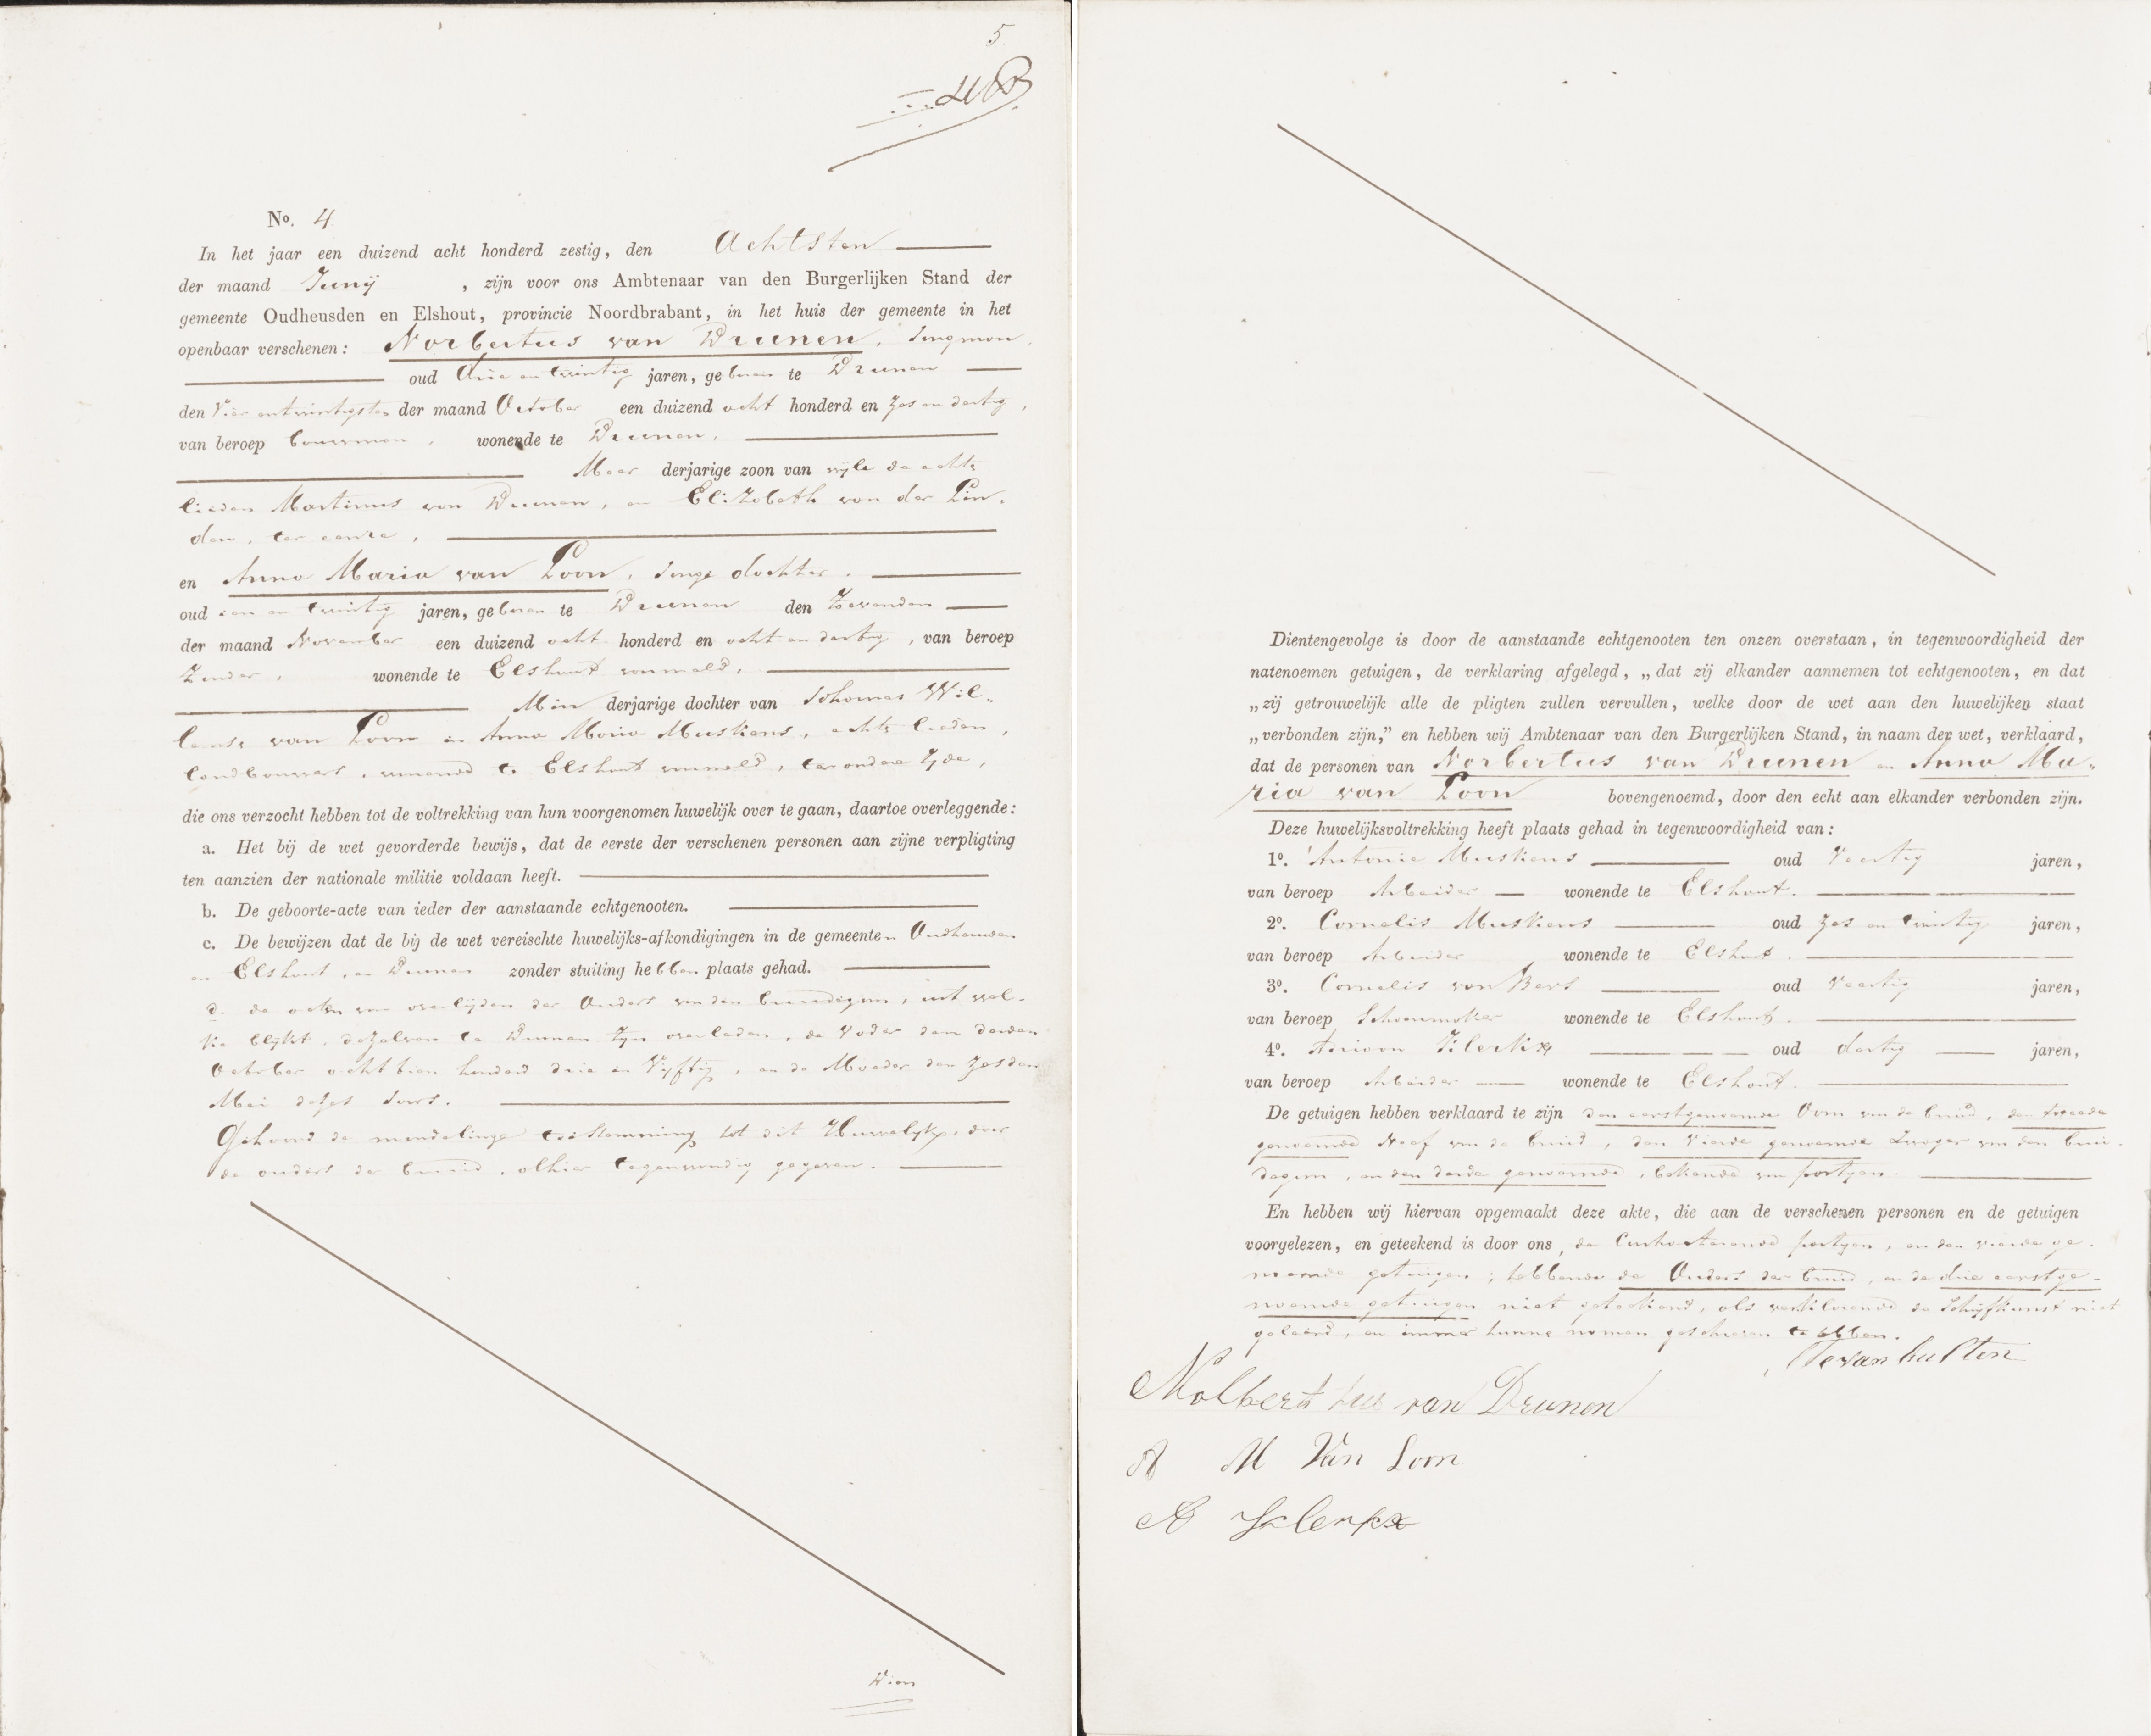 5
No. 4
In het jaar een duizend acht honderd zestig, den Achtsten
der maand Junij , zijn voor ons Ambtenaar van den Burgerlijken Stand der
gemeente Oudheusden en Elshout, provincie Noordbrabant, in het huis der gemeente in het
openbaar verschenen: Norbertus van Drunen, Jongman,
oud drie en twintig jaren, geboren te Drunen
den Vier entwintigsten der maand October een duizend acht honderd en zes en dertig,
van beroep bouwman, wonende te Drunen,
Meer derjarige zoon van wijle de echte
lieden Martinus van Drunen, en Elizabeth van der Lin-
den, ter eenre,
en Anna Maria van Loon, Jonge dochter,
oud een en twintig jaren, geboren te Drunen den Zevenden
der maand November een duizend acht honderd en acht en dertig, van beroep
Zonder, wonende te Elshout voormeld,
Min derjarige dochter van Johannes Wil-
lemse van Loon en Anna Maria Muskens, echte lieden,
landbouwers, wonende te Elshout voormeld, ter andere Zyde,
die ons verzocht hebben tot de voltrekking van hun voorgenomen huwelijk over te gaan, daartoe overleggende:
a. Het bij de wet gevorderde bewijs, dat de eerste der verschenen personen aan zijne verpligting
ten aanzien der nationale militie voldaan heeft.
b. De geboorte-acte van ieder der aanstaande echtgenooten.
c. De bewijzen dat de bij de wet vereischte huwelijks-afkondigingen in de gemeenten Oudheusden
en Elshout, en Drunen zonder stuiting hebben plaats gehad.
d. de acten van overlijden der Ouders van den bruidegom, uit wel-
ke blijkt, dezelven te Drunen zijn overleden, de Vader den derden
October achttien honderd drie en Vijftig, en de Moeder den zesden
Mei dezes Jaars.
Gehoord de mondelinge toestemming tot dit Huwelijk, door
de ouders der bruid, alhier tegenwoordig gegeven.
Dien
Dientengevolge is door de aanstaande echtgenooten ten onzen overstaan, in tegenwoordigheid der
natenoemen getuigen, de verklaring afgelegd, „dat zij elkander aannemen tot echtgenooten, en dat
„zij getrouwelijk alle de pligten zullen vervullen, welke door de wet aan den huwelijken staat
„verbonden zijn,” en hebben wij Ambtenaar van den Burgerlijken Stand, in naam der wet, verklaard,
dat de personen van Norbertus van Drunen en Anna Ma-
ria van Loon bovengenoemd, door den echt aan elkander verbonden zijn.
Deze huwelijksvoltrekking heeft plaats gehad in tegenwoordigheid van:
1o. Antonie Muskens oud Veertig jaren,
van beroep Arbeider wonende te Elshout.
2o. Cornelis Muskens oud zes en twintig jaren,
van beroep Arbeider wonende te Elshout.
3o. Cornelis van Bers oud Veertig jaren,
van beroep Schoenmaker wonende te Elshout.
4o. Adriaan Klerkx oud dertig jaren,
van beroep Arbeider wonende te Elshout.
De getuigen hebben verklaard te zijn den eerstgenoemde Oom van de bruid, den tweede
genoemde Neef van de bruid, den Vierde genoemde Zwager van den brui-
degom, en den derde genoemde, bekende van partyen.
En hebben wij hiervan opgemaakt deze akte, die aan de verschenen personen en de getuigen
voorgelezen, en geteekend is door ons, de Comparerende partyen, en den vierde ge-
noemde getuigen; hebbende de Ouders der bruid, en de drie eerstge-
noemde getuigen niet geteekend, als verklarende de Schrijfkunst niet
geleerd, en immer hunne namen geschreven te hebben.
van hulten
Nolberthus van Drunen
A M Van Loon
A Klerkx